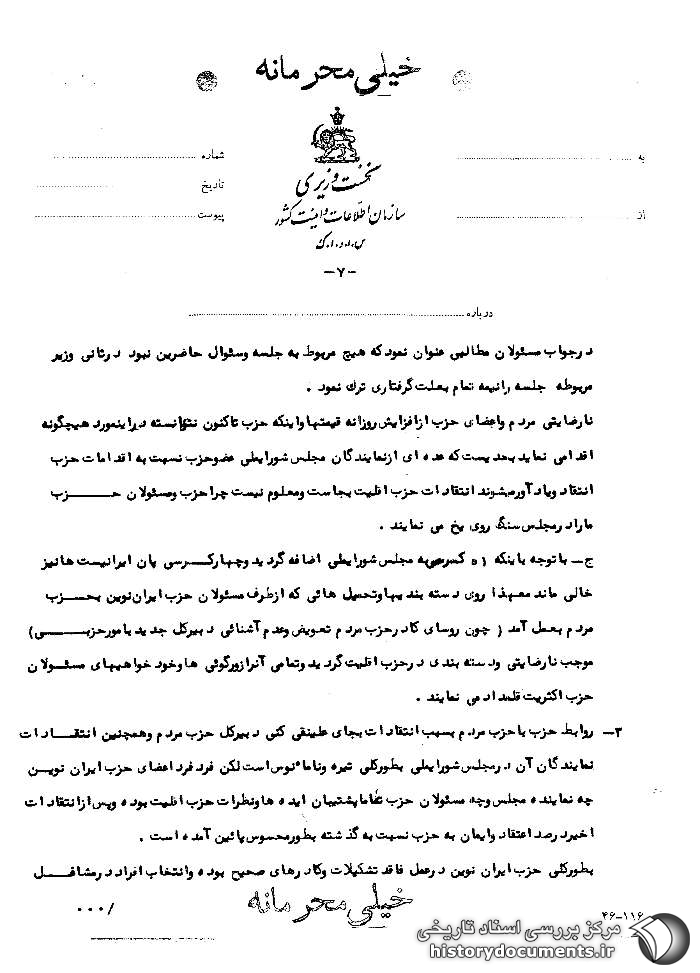 خیلی محرمانه
به
شماره
تاریخ
از
پیوست
نخست وزیری
سازمان اطلاعات و امنیت کشور
س.ا.و.ا.ک
-۷-
درباره
درجواب مسئولان مطالبی عنوان نمود که هیچ مربوط به جلسه وسئوال حاضرین نبود درثانی وزیر
مربوطه جلسه رانیمه تمام بعلت گرفتاری ترك نمود .
نارضایتی مردم واعضای حزب ازافزایش روزانه قیمتها واینکه حزب تاکنون نتوانسته دراینمورد هیچگونه
اقدامی نماید بحدیست که عده ای ازنمایندگان مجلس شورایملی عضوحزب نسبت به اقدامات حزب
انتقاد ویادآورمیشوند انتقادات حزب اقلیت بجاست ومعلوم نیست چرا حزب ومسئولان حزب
مارادرمجلس سنگ روی یخ می نمایند .
ج- باتوجه باینکه ۵۱ کرسی به مجلس شورایملی اضافه گردید وچهارکرسی پان ایرانیست هانیز
خالی ماند معهذا روی دسته بندیها وتحمیل هائی که ازطرف مسئولان حزب ایران نوین بحزب
مردم بعمل آمد ( چون روسای کادر حزب مردم تعویض وعدم آشنائی دبیرکل جدید بامورحزبی)
موجب نارضایتی ودسته بندی درحزب اقلیت گردید وتمامی آنرا زورگوئی ها وخود خواهیهای مسئولان
حزب اکثریت قلمداد می نمایند .
۳- روابط حزب باحزب مردم بسبب انتقادات بجای علینقی کنی دبیرکل حزب مردم وهمچنین انتقادات
نمایندگان آن درمجلس شورایملی بطورکلی تیره ونامأنوس است لکن فرد فرد اعضای حزب ایران نوین
چه نماینده مجلس وچه مسئولان حزب تماما پشتیبان ایده ها ونظرات حزب اقلیت بوده وپس ازانتقادات
اخیر درصد اعتقاد وایمان به حزب نسبت به گذشته بطورمحسوس پائین آمده است .
بطورکلی حزب ایران نوین درعمل فاقد تشکیلات وکادرهای صحیح بوده وانتخاب افراد درمشاغل
خیلی محرمانه
/۰۰۰
۴۶-۱۱۶
مرکز بررسی اسناد تاریخی
historydocuments.ir